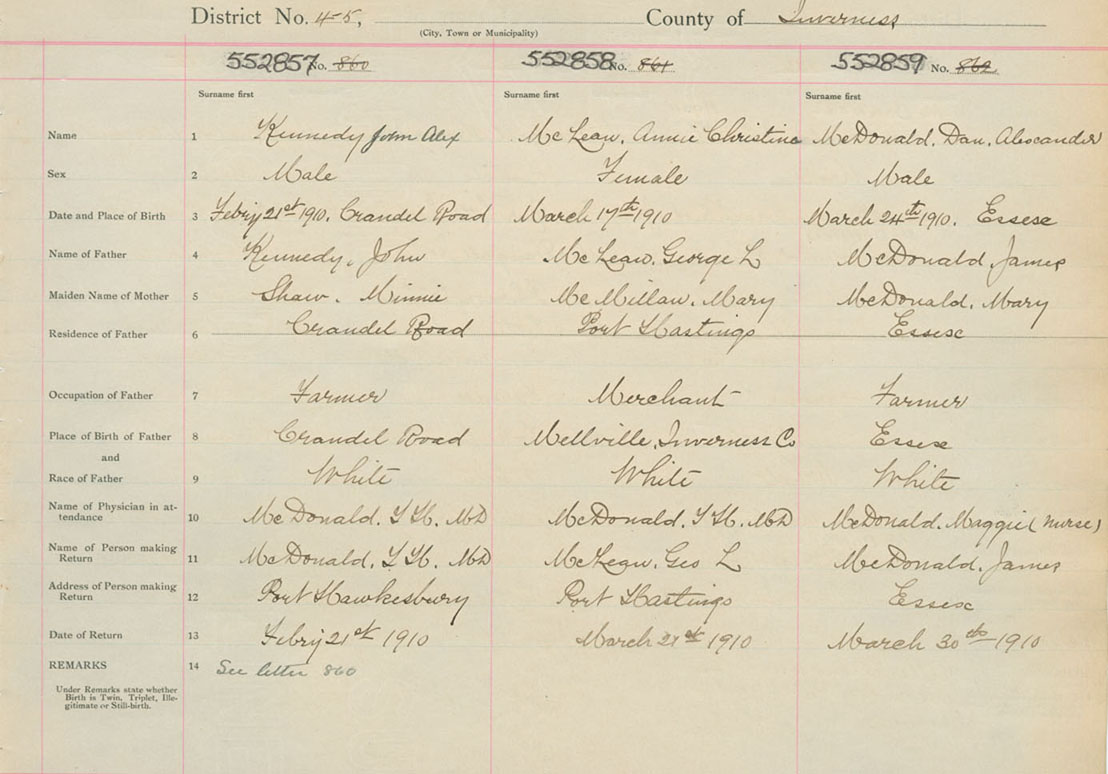 District No. 45, County of Inverness
(City, Town or Municipality)
552857 No. 860 552858 No. 861 552859 No. 862
Surname first Surname first Surname first
Name 1 Kennedy John Alex McLean, Annie Christine McDonald, Dan. Alexander
Sex 2 Male Female Male
Date and Place of Birth 3 Febry 21st 1910. Crandel Road March 17th 1910 March 24th 1910. Essex
Name of Father 4 Kennedy, John McLean, George L McDonald James
Maiden Name of Mother 5 Shaw. Minnie McMillan, Mary McDonald, Mary
Residence of Father 6 Crandel Road Port Hastings Essex
Occupation of Father 7 Farmer Merchant Farmer
Place of Birth of Father 8 Crandel Road Mellville, Inverness Co Essex
and
Race of Father 9 White White White
Name of Physician in at-
tendance 10 McDonald. MD McDonald. MD McDonald. Maggie (nurse)
Name of Person making
Return 11 McDonald. MD McLean. Geo L McDonald, James
Address of Person making
Return 12 Port Hawkesbury Port Hastings Essex
Date of Return 13 Febry 21st 1910 March 21st 1910 March 30th 1910
REMARKS 14 See letter 860
Under Remarks state whether
Birth is Twin, Triplet, Ille-
gitimate or Still-birth.